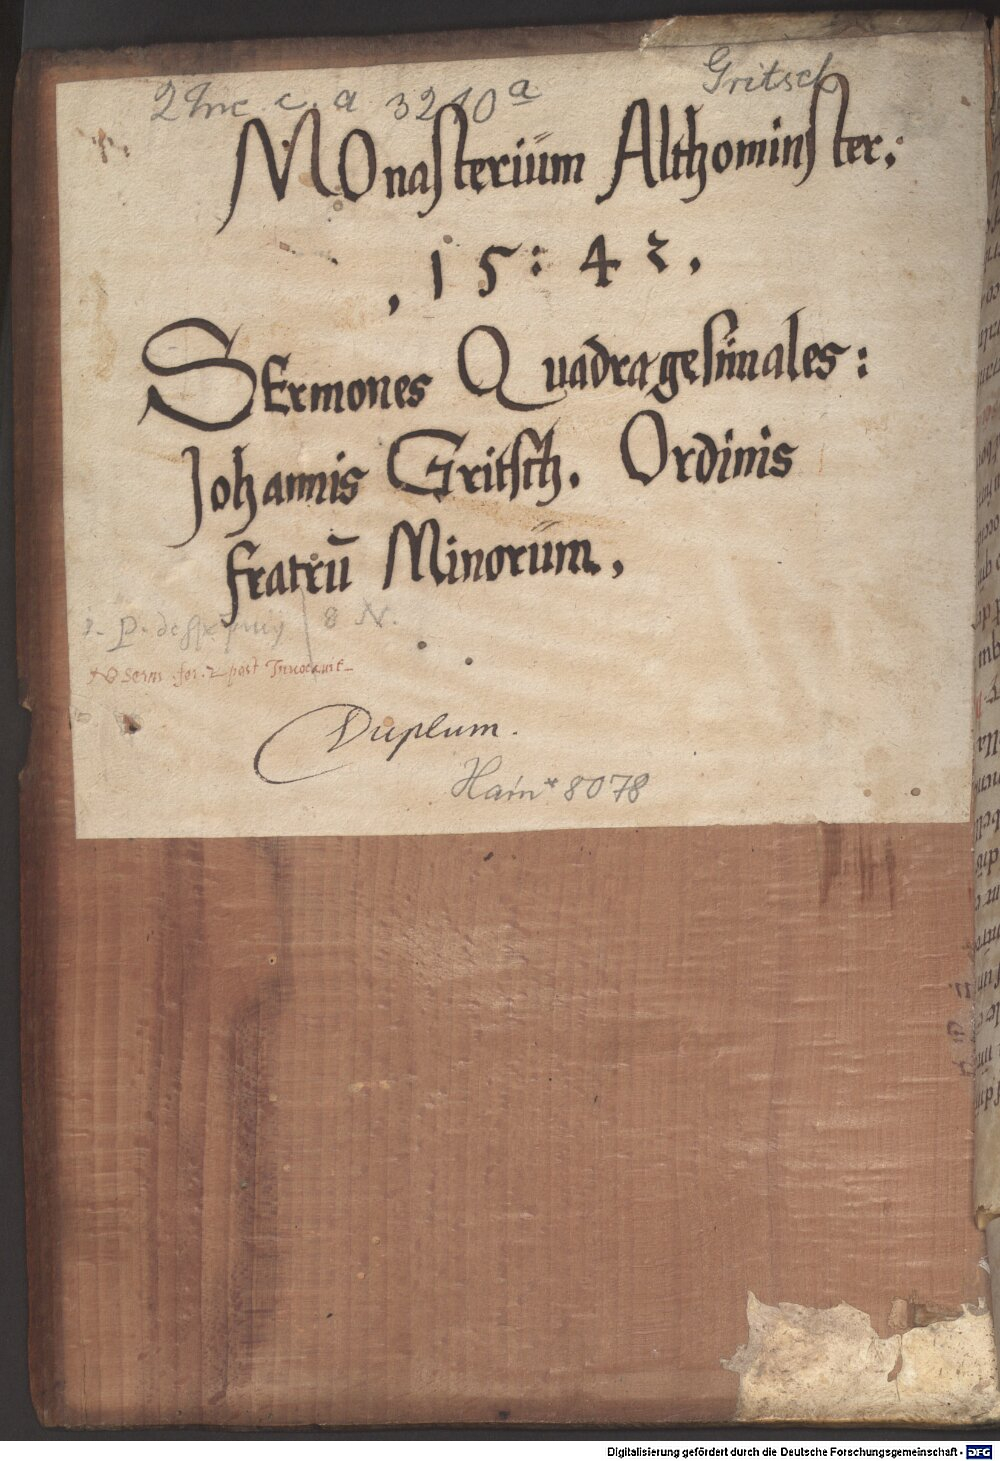 2 Inc. c. a. 3210 a
Gritsch
MOnasterium Althominster.
, 15 : 42 .
SErmones Quadragesimales :
Johannis Gritsch. Ordinis
fratrū Minorum,
8 N.
serm. fer. 2 post Invocavit
Duplum.
Hain* 8078
Digitalisierung gefördert durch die Deutsche Forschungsgemeinschaft - DFG